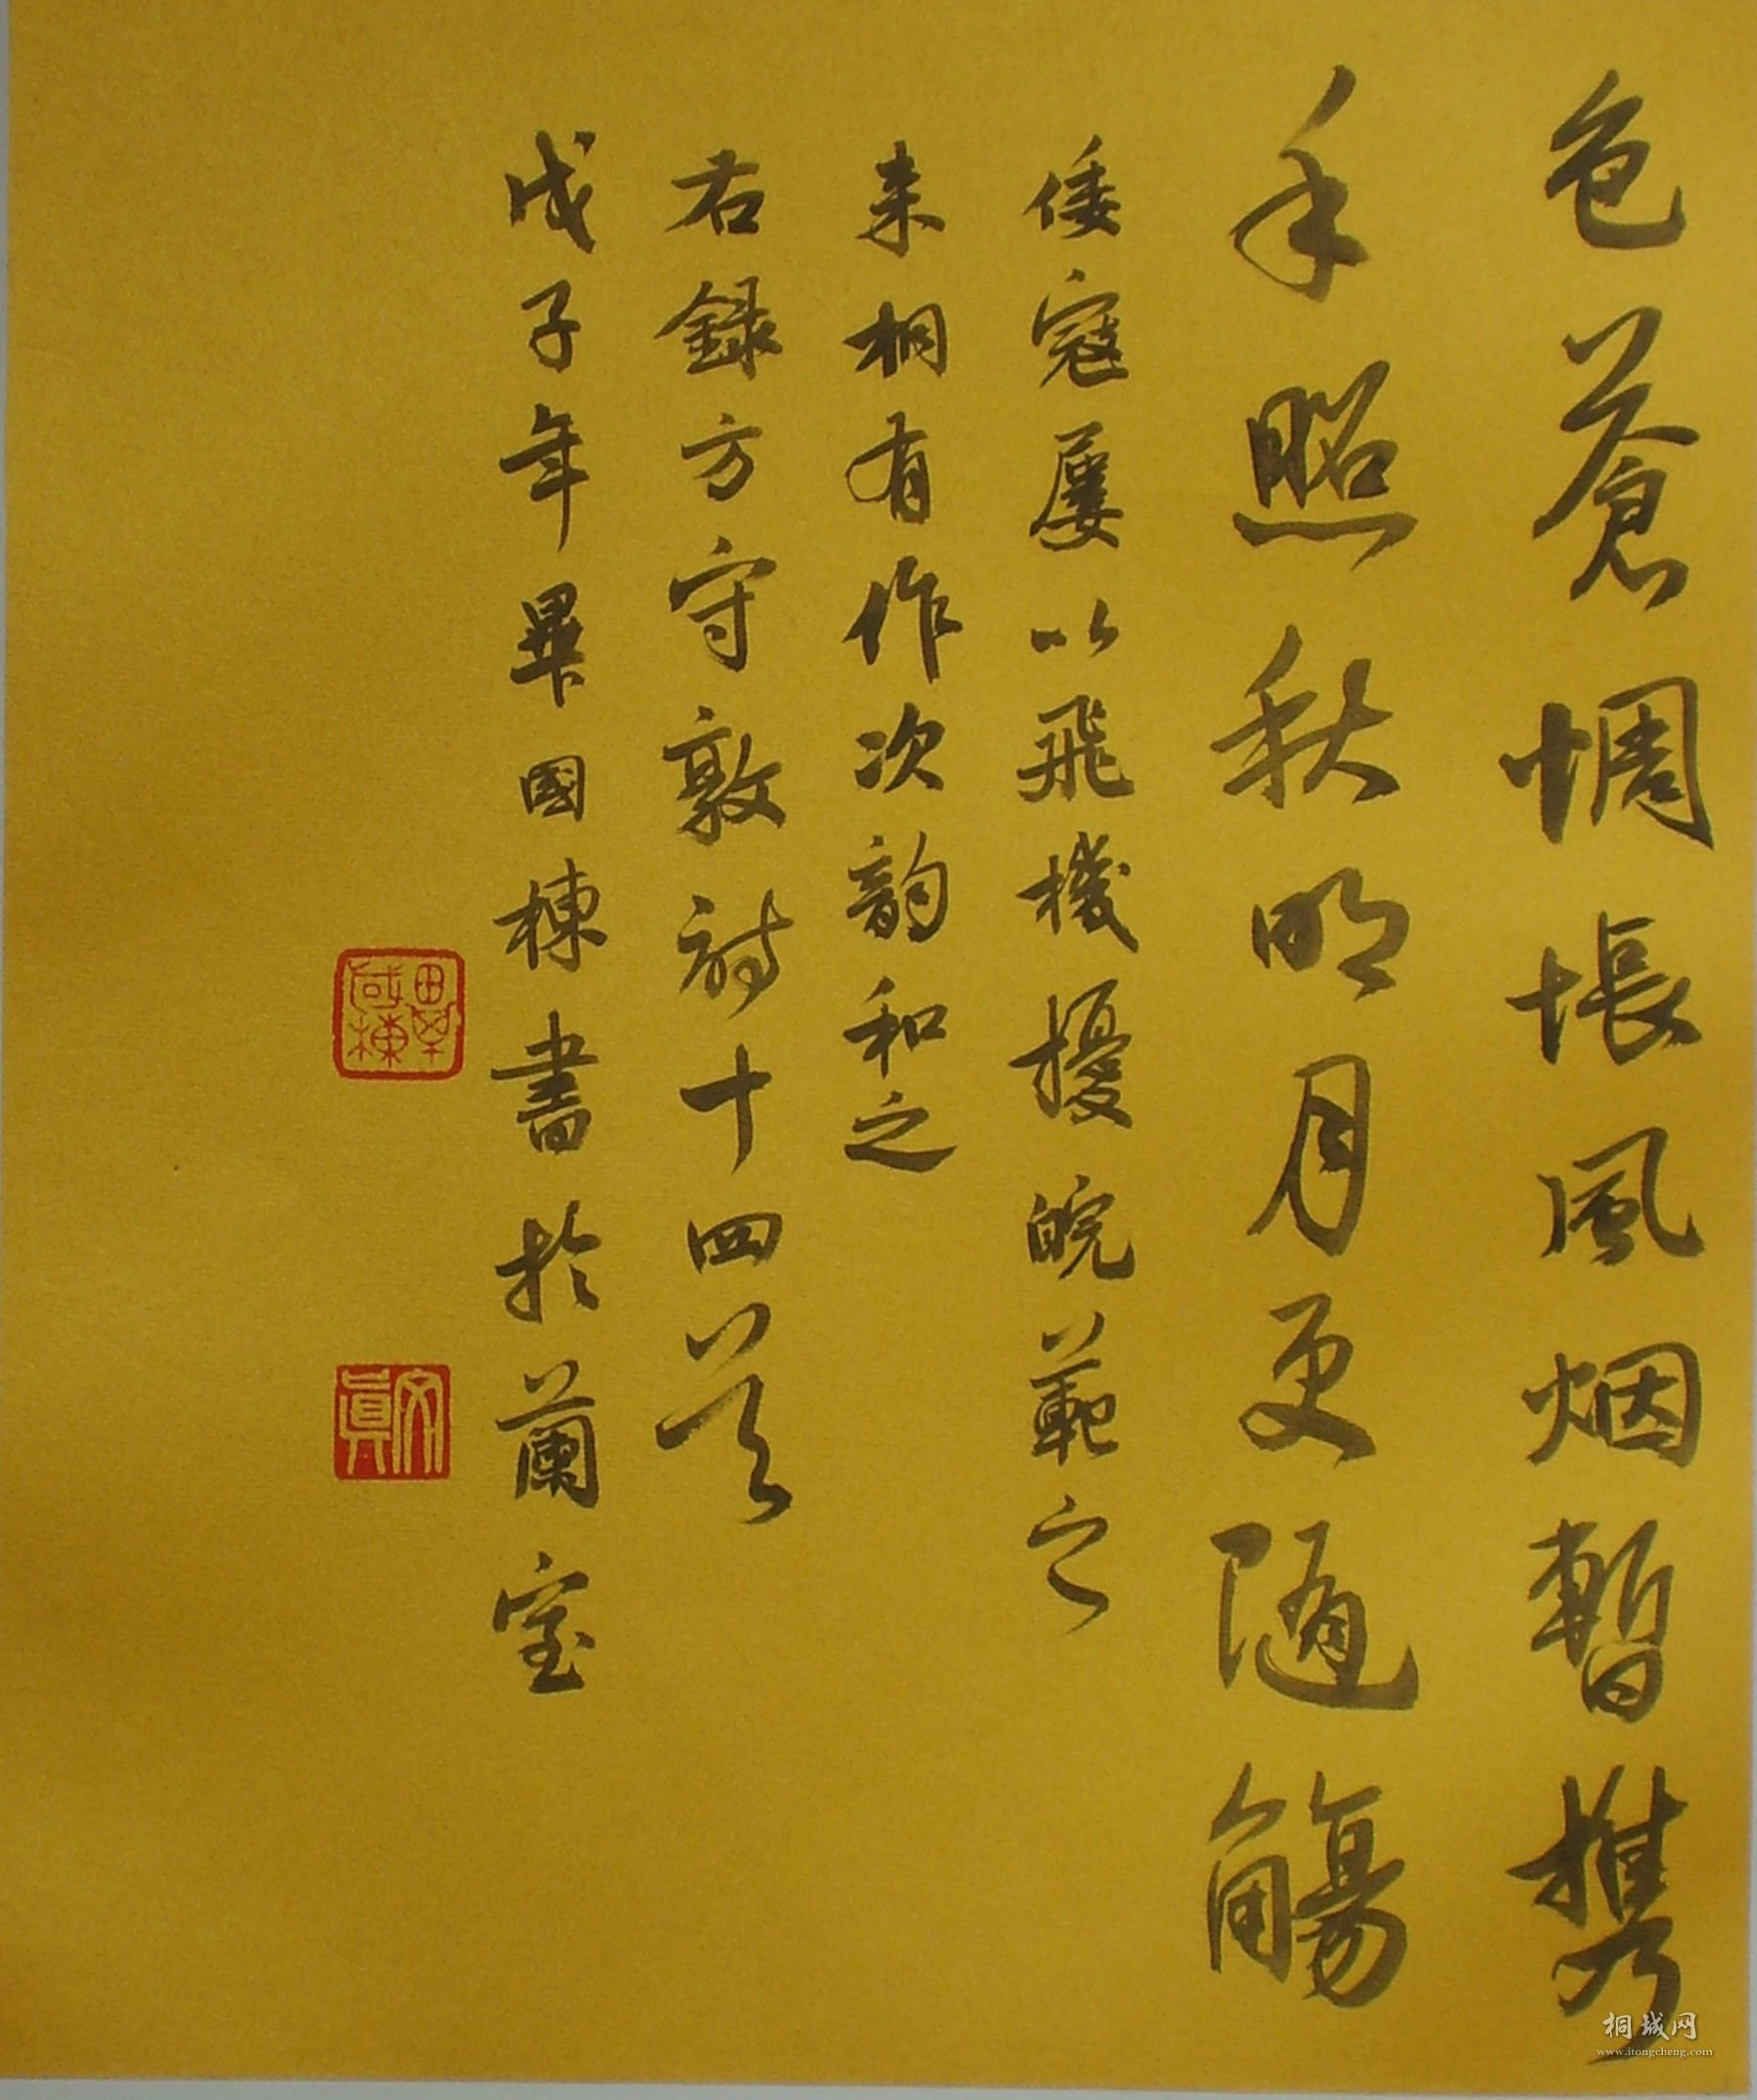 色蒼惆悵風烟暫携
手照秋明月更隨觴
倭寇屢以飛機擾皖範之
来桐有作次韵和之
右録方守敦詩十四首
戊子年畢國棟書於蘭室
畢國棟
文真
桐城网
www.itongcheng.com